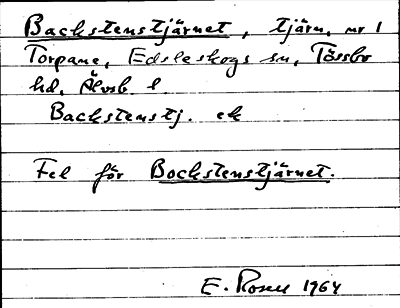 Backstenstjärnet, tjärn, nr 1
Torpane, Edsleskogs sn, Tössbo
hd, Älvsb l
Backstenstj. ek
Fel för Bockstenstjärnet.
E. Rosell 1964